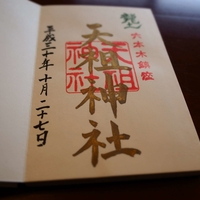 龍土
六本木鎮座
天祖神社
天祖神社
平成三十年十月二十七日